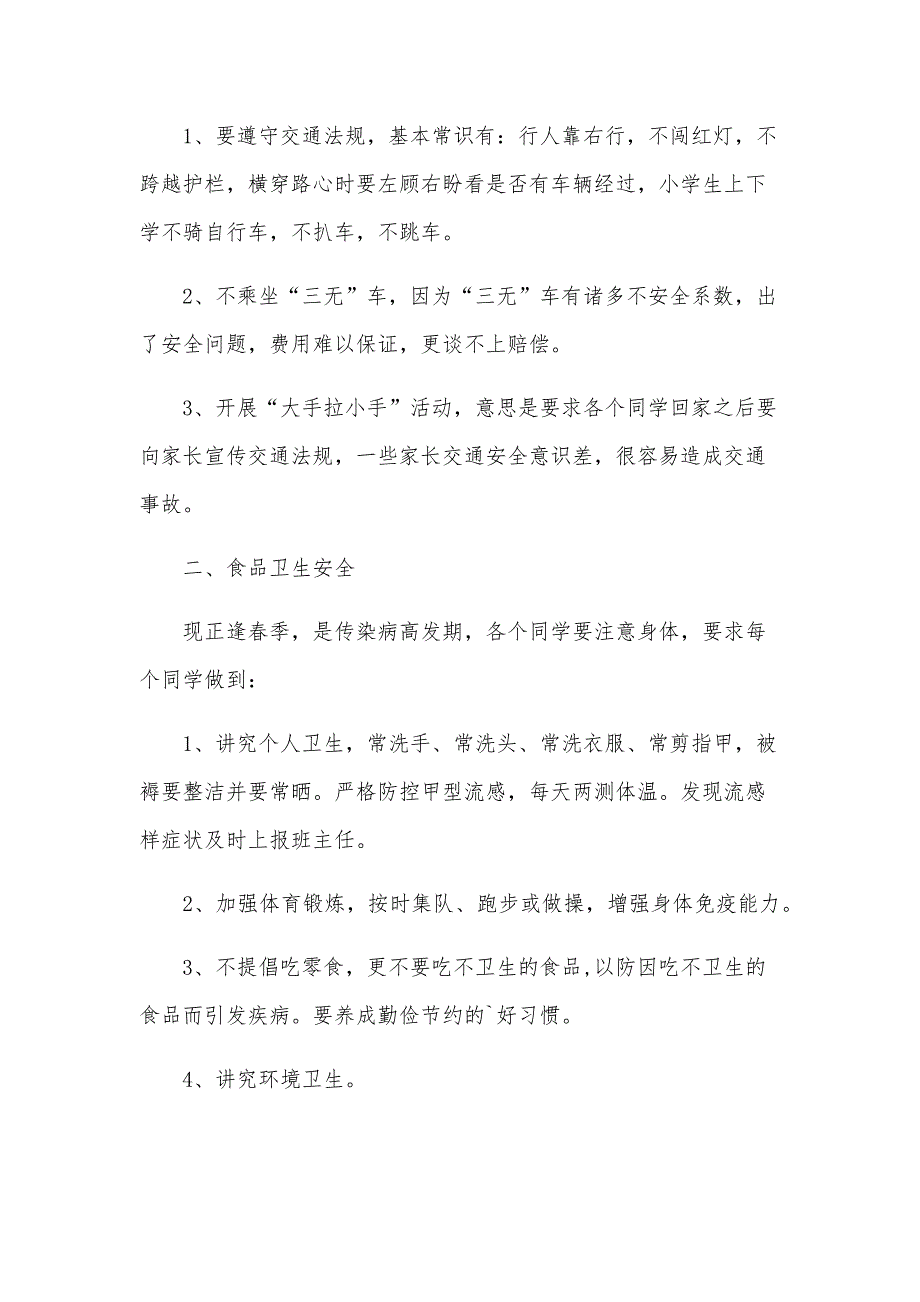 1、要遵守交通法规，基本常识有：行人靠右行，不闯红灯，不
跨越护栏，横穿路心时要左顾右盼看是否有车辆经过，小学生上下
学不骑自行车，不扒车，不跳车。
2、不乘坐“三无”车，因为“三无”车有诸多不安全系数，出
了安全问题，费用难以保证，更谈不上赔偿。
3、开展“大手拉小手”活动，意思是要求各个同学回家之后要
向家长宣传交通法规，一些家长交通安全意识差，很容易造成交通
事故。
二、食品卫生安全
现正逢春季，是传染病高发期，各个同学要注意身体，要求每
个同学做到：
1、讲究个人卫生，常洗手、常洗头、常洗衣服、常剪指甲，被
褥要整洁并要常晒。严格防控甲型流感，每天两测体温。发现流感
样症状及时上报班主任。
2、加强体育锻炼，按时集队、跑步或做操，增强身体免疫能力。
3、不提倡吃零食，更不要吃不卫生的食品,以防因吃不卫生的
食品而引发疾病。要养成勤俭节约的`好习惯。
4、讲究环境卫生。